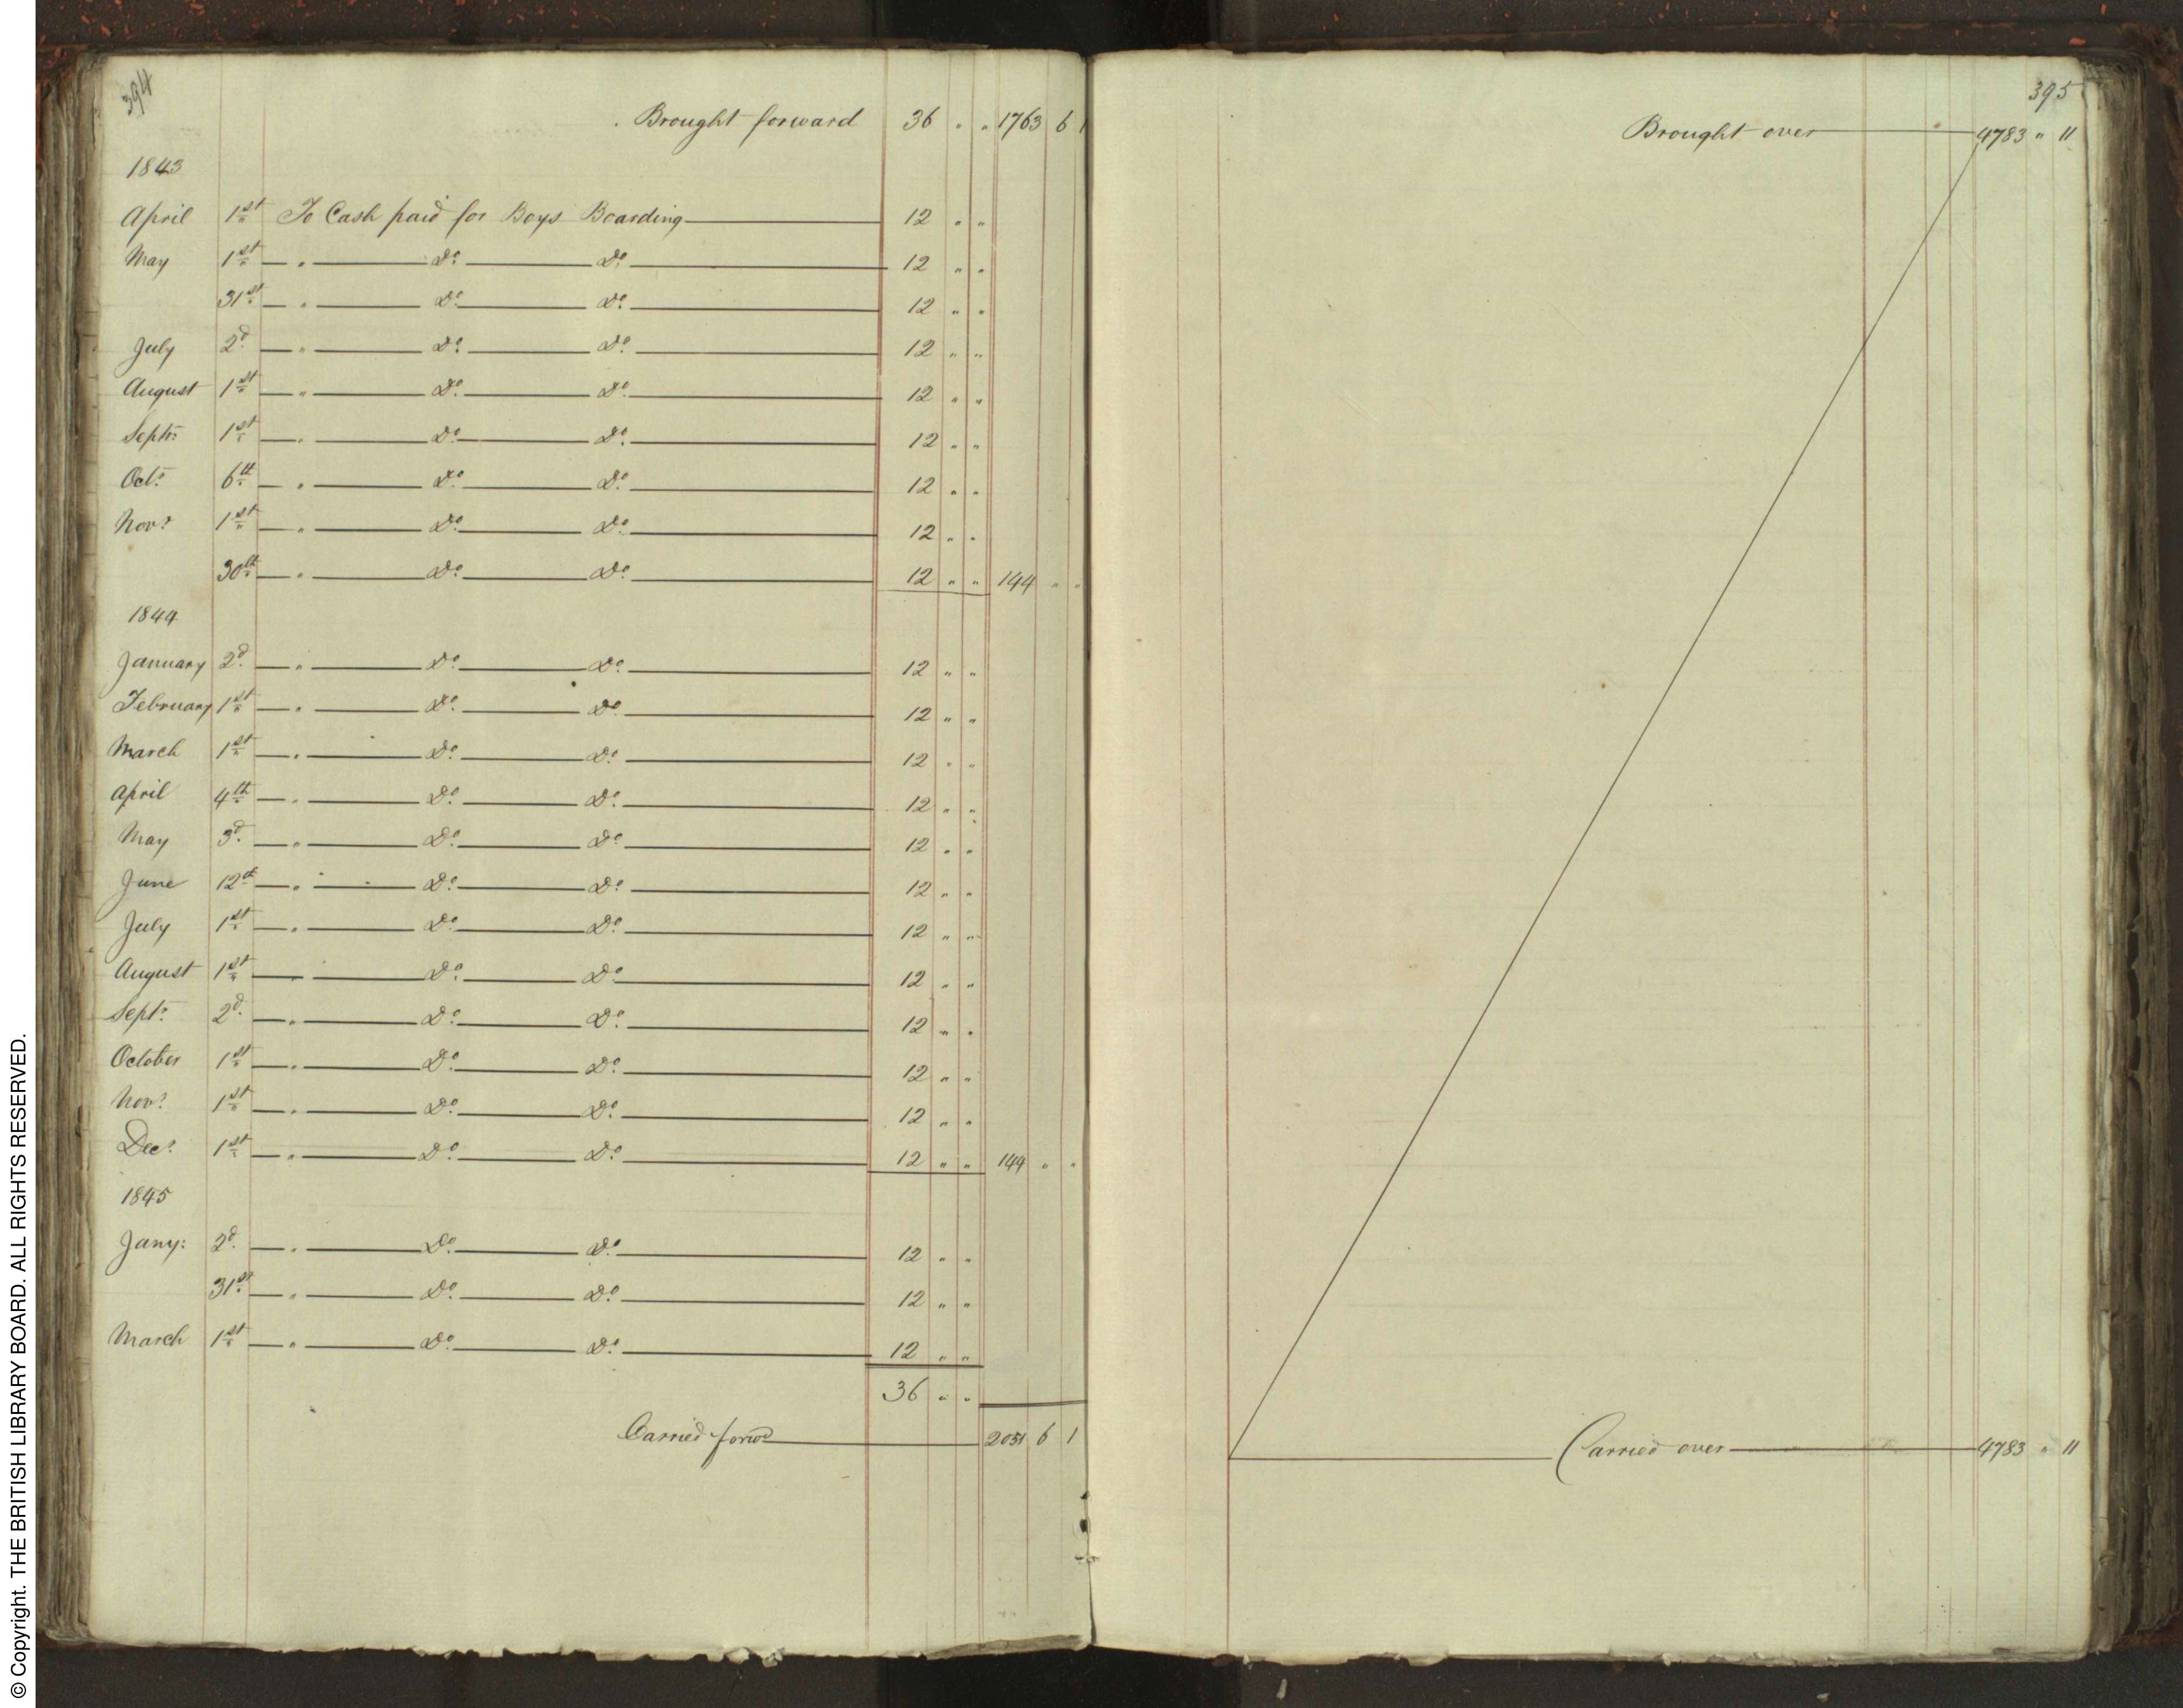 394
Brought forward 36 " " 1763 6 1
1843
April 1st To Cash paid for Boys Boarding 12 " "
May 1st " Do Do 12 " "
31st " Do Do 12 " "
July 2d " Do Do 12 " "
August 1st " Do Do 12 " "
Septr 1st " Do Do 12 " "
Octr 6th " Do Do 12 " "
Novr 1st " Do Do 12 " "
30th " Do Do 12 " " 144 " "
1844
January 2d " Do Do 12 " "
February 1st " Do Do 12 " "
March 1st " Do Do 12 " "
April 4th " Do Do 12 " "
May 3d " Do Do 12 " "
June 12th " Do Do 12 " "
July 1st " Do Do 12 " "
August 1st " Do Do 12 " "
Septr 2d " Do Do 12 " "
October 1st " Do Do 12 " "
Novr 1st " Do Do 12 " "
Decr 1st " Do Do 12 " " 144 " "
1845
Jany: 2d " Do Do 12 " "
31st " Do Do 12 " "
March 1st " Do Do 12 " "
36 " "
Carried forwd 2051 6 1
395
Brought over 4783 " 11
Carried over 4783 " 11
© Copyright. THE BRITISH LIBRARY BOARD. ALL RIGHTS RESERVED.